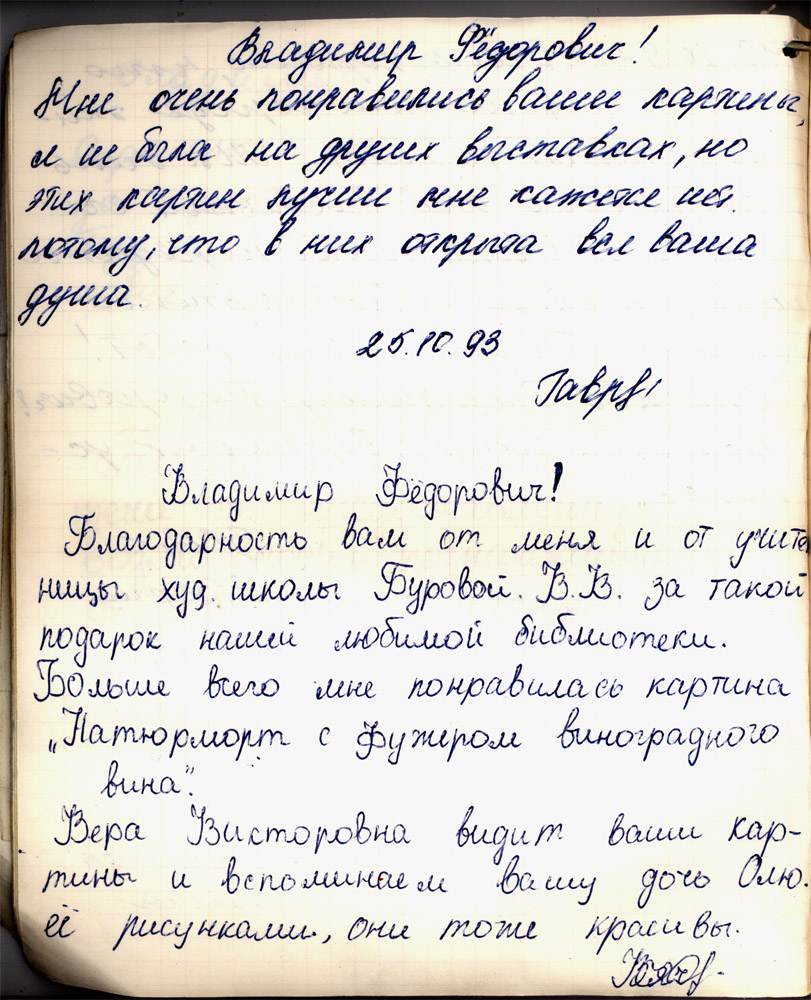 Владимир Фёдорович!
Мне очень понравились ваши картины,
я не была на других выставках, но
этих картин лучше мне кажется нет.
потому, что в них открыта вся ваша
душа.
25.10.93
Владимир Фёдорович!
Благодарность вам от меня и от учите
ницы худ. школы Буровой. В.В. за такой
подарок нашей любимой библиотеки.
Больше всего мне понравилась картина
„Натюрморт с фужером виноградного
вина".
Вера Викторовна видит ваши кар-
тины и вспоминаем вашу дочь Олю.
её рисунками., они тоже красивы.